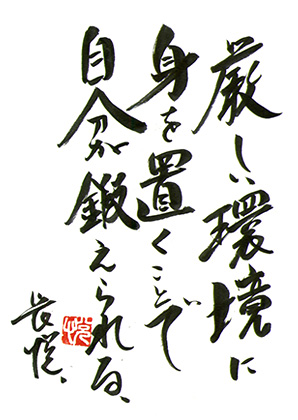 厳しい環境に
身を置くことで
自分が鍛えられる、
長悦、
悦